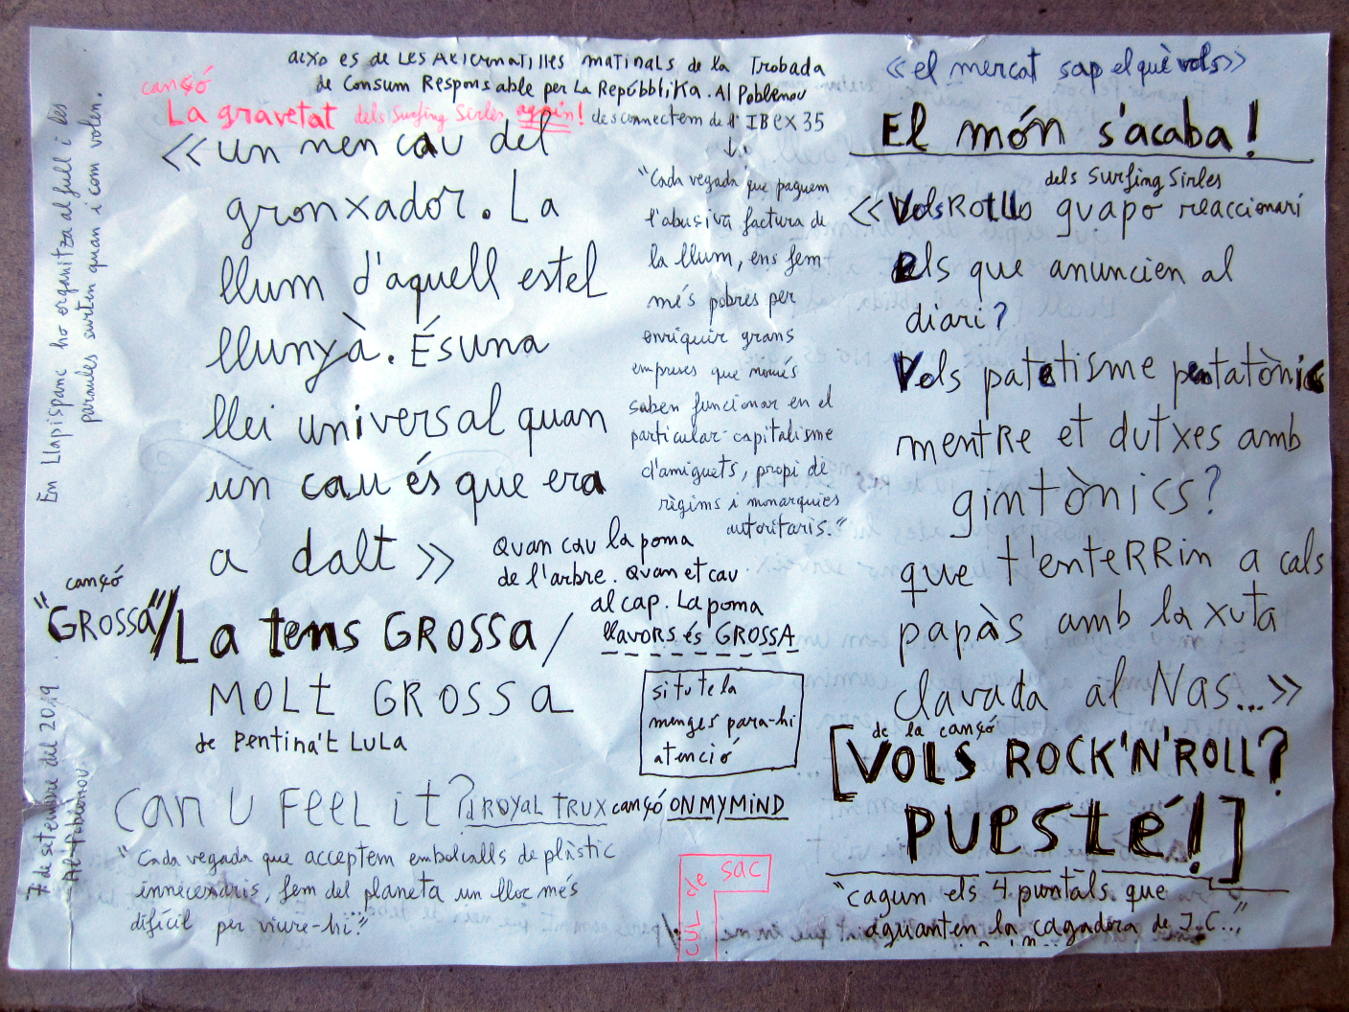 això es de LES AlteRnatiVes matinals de la Trobada
de Consum Responsable per La RepúbbliKa. Al Poblenou
cançó
La gravetat dels Surfing Sirles again! desconnectem de l' IBEX 35
«un nen cau del
gronxador. La
llum d'aquell estel
llunyà. És una
llei universal quan
un cau és que era
a dalt»
"Cada vegada que paguem
l'abusiva factura de
la llum, ens fem
més pobres per
enriquir grans
empreses que només
saben funcionar en el
particular capitalisme
d'amiguets, propi de
règims i monarquies
autoritaris."
Quan cau la poma
de l'arbre. Quan et cau
al cap. La poma
llavors és GROSSA
cançó
"GROSSA"/La tens GROSSA/
MOLT GROSSA
de Pentina't LuLa
si tu te la
menges para-hi
atenció
Can U Feel it? d ROYAL TRUX cançó ON MY MIND
"Cada vegada que acceptem embolcalls de plàstic
innecessaris, fem del planeta un lloc més
difícil per viure-hi."
CUL de SAC
«el mercat sap el què vols»
El món s'acaba!
dels Surfing Sirles
«Vols Rotllo guapo reaccionari
dels que anuncien al
diari?
Vols patetisme pentatònic
mentRe et dutxes amb
gintònics?
que t'enteRRin a cals
papàs amb la xuta
clavada al Nas...»
de la cançó
[VOLS ROCK'N'ROLL?
PUESTÉ!]
"cagun els 4 puntals que
aguanten la cagadora de J.C..."
En Llapispanc ho organitza al full i les
paraules surten quan i com volen.
7 de setembre del 2019
Al Poblenou.